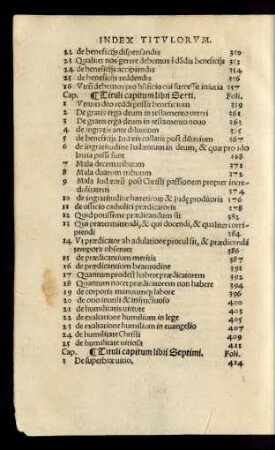 INDEX TITVLORVM.
22 de beneficijs dispensandis 350
23 Qualiter nos gerere debemus i dādis beneficijs 353
24 de beneficijs accipiendis 354
25 de beneficijs reddendis 356
26 debemus pro bñficio cui successit iniuria 357
Cap. ¶ Tituli capitum libri Sexti. Foli.
1 Vtrum deo reddi possit beneficium 359
2 De gratis erga deum in testamento veteri 361
3 De gratis erga deum in testamento nouo 362
4 de ingratis ante diluuium 365
5 de beneficijs Iudeis collatis post diluuium 367
6 de ingratitudine Iudaeorum in deum, & quae pro idolatria passi sunt 368
7 Mala decem tribuum 371
8 Mala duarum tribuum 372
9 Mala Iudaeorū post Christi passionem propter incredulitatem 374
10 de ingratitudine haereticorū & 376
11 de officio catholici praedicatoris 378
12 Quid potissime praedicandum sit 382
13 Qui praeeminendi, & qui docendi, & qualiter corripiendi 384
14 Vt praedicator ab adulatione procul sit, & praedicandi tempora obseruet 386
15 de praedicantium meritis 387
16 de praedicantium beatitudine 391
17 Quantum prodest habere praedicatorem 392
18 Quantum nocet praedicatorem non habere 394
19 de corporis manuumque labore 396
20 de otio inutili & infructuoso 400
21 de humilitatis virtute 403
22 de exaltatione humilium in lege 405
23 de exaltatione humilium in euangelio 407
24 de humilitate Christi 409
25 de humilitate vitiosa 411
Cap. ¶ Tituli capitum libri Septimi. Foli.
1 De superbiae vitio, 414